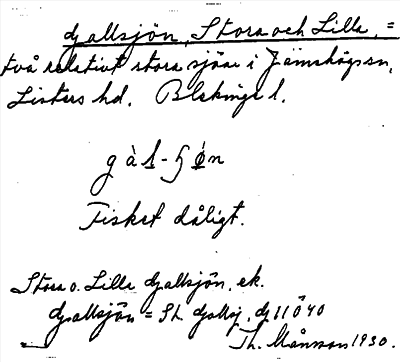 Gallsjön, Stora och Lilla, =
två relativt stora sjöar i Jämshögs sn,
Listers hd. Blekinge l.
g à l - ʃ ø n
Fisket dåligt.
Stora o. Lilla Gallsjön, ek.
Gallsjön = St. Gallsj, G 11 Ö 40
Th. Månsson 1930.